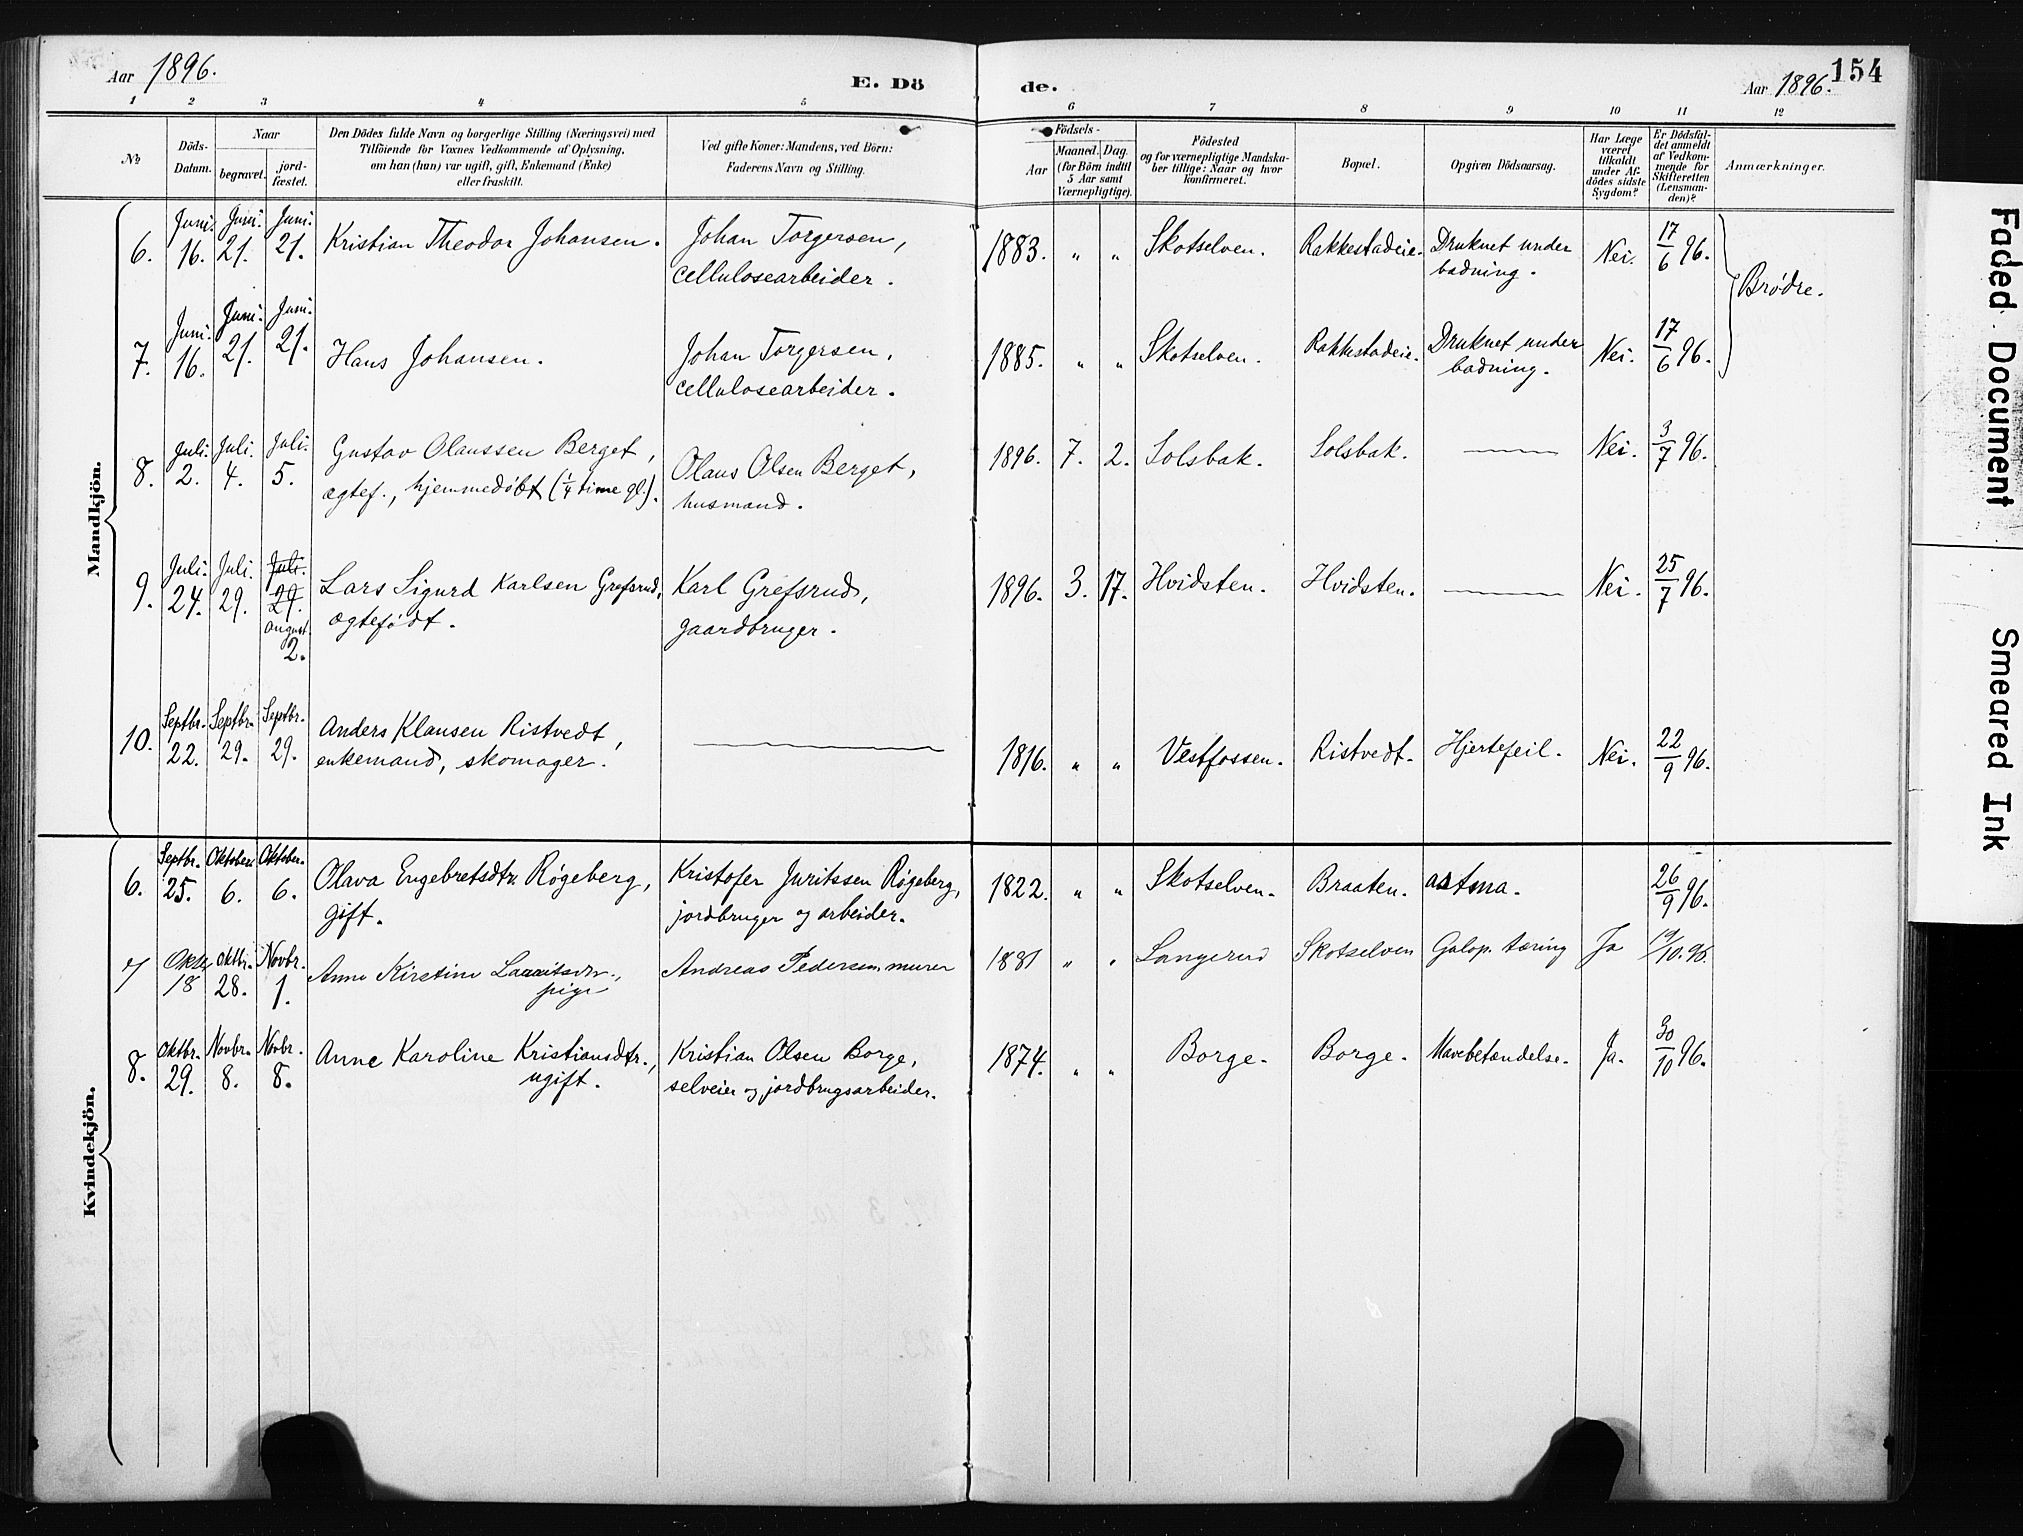 Aar 1896.
E. Dö
de.
Aar 1896.
154
1 2 3 4 5 6 7 8 9 10 11 12
No
Döds-
Datum.
Naar
begravet.
jord-
fæstet.
Den Dödes fulde Navn og borgerlige Stilling (Næringsvei) med
Tilföiende for Voxnes Vedkommende af Oplysning,
om han (hun) var ugift, gift, Enkemand (Enke)
eller fraskilt.
Ved gifte Koner: Mandens, ved Börn:
Faderens Navn og Stilling.
Födsels-
Aar
Maaned. Dag.
(for Börn indtil
5 Aar samt
Værnepligtige).
Födested
og for værnepligtige Mandska-
ber tillige: Naar og hvor
konfirmeret.
Bopæl.
Opgiven Dödsaarsag.
Har Læge
været
tilkaldt
under Af-
dödes sidste
Sygdom?
Er Dödsfal-
det anmeldt
af Vedkom-
mende for
Skifteretten
(Lensman-
den)?
Anmærkninger.
Mandkjön.
6. Juni. 16. Juni. 21. Juni. 21. Kristian Theodor Johansen. Johan Torgersen,
cellulosearbeider.
1883. " " Skotselven. Rakkestadeie. Druknet under
badning.
Nei. 17/6 96.
Brødre.
7. Juni. 16. Juni. 21. Juni. 21. Hans Johansen. Johan Torgersen,
cellulosearbeider.
1885. " " Skotselven. Rakkestadeie. Druknet under
badning.
Nei. 17/6 96.
8. Juli. 2. Juli. 4. Juli. 5. Gustav Olaussen Berget,
ægtef., hjemmedøbt (1/4 time gl.).
Olaus Olsen Berget,
husmand.
1896. 7. 2. Solsbak. Solsbak. —— Nei. 3/7 96.
9. Juli. 24. Juli. 29. Juli. 29. august. 2. Lars Sigurd Karlsen Grefsrud,
ægtefødt.
Karl Grefsrud,
gaardbruger.
1896. 3. 17. Hvidsten. Hvidsten. —— Nei. 25/7 96.
10. Septbr. 22. Septbr. 29. Septbr. 29. Anders Klausen Ristvedt,
enkemand, skomager.
——
1816. " " Vestfossen. Ristvedt. Hjertefeil. Nei. 22/9 96.
Kvindekjön.
6. Septbr. 25. Oktober. 6. Oktober. 6. Olava Engebretsdtr. Røgeberg,
gift.
Kristofer Juritssen Røgeberg,
jordbruger og arbeider.
1822. " " Skotselven. Braaten. astma. 26/9 96.
7 Oktbr 18 oktbr. 28. Novbr. 1. Anne Kirstine
pige
Andreas Pedersen, murer
1881 " " Langerud Skotselven Galop. tæring Ja 19/10.96.
8. Oktbr. 29. Novbr. 8. Novbr. 8. Anne Karoline Kristiansdtr.,
ugift.
Kristian Olsen Borge,
selveier og jordbrugsarbeider.
1874. " " Borge. Borge. Mavebetændelse. Ja. 30/10 96.
Faded Document
Smeared Ink